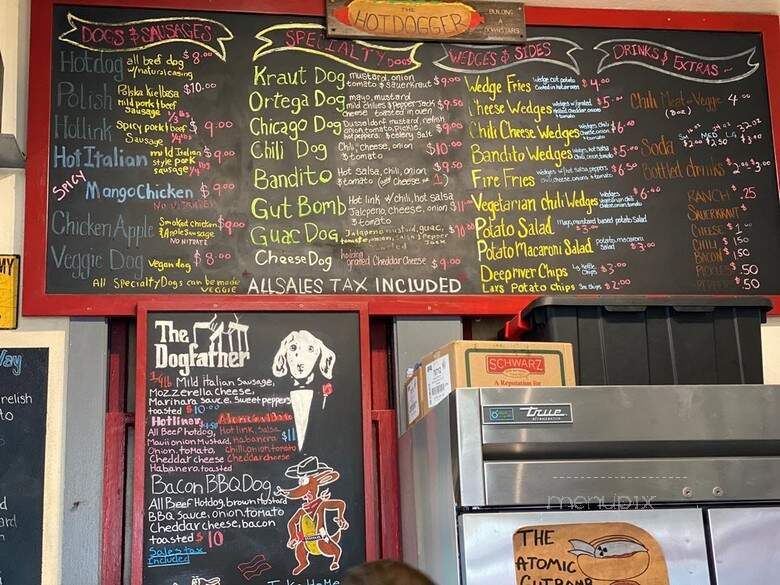 THE
HOTDOGGER
DOGS & SAUSAGES
Hotdog all beef dog $8.00
w/natural casing
Polish Polska Kielbasa $10.00
mild pork & beef
Sausage
Hotlink Spicy pork & beef $9.00
Sausage
Hot Italian mild Italian $9.00
style pork
sausage
SPICY
Mango Chicken $9.00
NO NITRATES
Chicken Apple Smoked chicken $9.00
& Apple Sausage
NO NITRATE
Veggie Dog Vegan dog $8.00
All Specialty Dogs can be made
VEGGIE
SPECIALTY DOGS
Kraut Dog mustard, onion $9.00
tomato & sauerkraut
Ortega Dog mayo, mustard $9.50
mild chilies & Pepper Jack
cheese toasted in oven
Chicago Dog Dusseldorf mustard, relish
onion, tomato, pickle, $9.00
hot peppers, & celery Salt
Chili Dog Chili, cheese, onion $10.00
& tomato
Bandito Hot salsa, chili, onion $9.50
& tomato
Gut Bomb Hot link w/ chili, hot salsa
Jalapeno, cheese, onion $11
& tomato
Guac Dog Jalapeno mustard, guac, $10
Cheese Dog
grated Cheddar Cheese $9.00
ALL SALES TAX INCLUDED
WEDGES & SIDES
Wedge Fries wedge cut potato $4.00
Cheese Wedges $5.00
Chili Cheese Wedges $6.00
Bandito Wedges $5.00
Fire Fries $6.50
Vegetarian chili Wedges
Potato Salad mayo, mustard based potato Salad
$3.00
Potato Macaroni Salad potato, macaroni
Salad $3.00
Deep river Chips Lg Kettle $3.00
Chips
Lays Potato Chips Sm Chips $2.00
DRINKS & EXTRAS
Chili Meat-Veggie 4.00
Soda SM MED LG
Bottled drinks
RANCH $.25
SAUERKRAUT
CHEESE $1.00
CHILI $1.50
BACON $1.50
PICKLES $.50
.50
The
Dogfather
1/4 lb Mild Italian Sausage,
Mozzerella Cheese,
Marinara sauce, Sweet peppers
toasted $10.00
Hotliner
All Beef hotdog, Hot link, Salsa
Maui onion Mustard, Habanero $11
Onion, Tomato, Chili, onion, tomato
Cheddar cheese Cheddar cheese
Habanero, toasted
BaCon BBQ Dog
All Beef Hotdog, brown Mustard
BBQ Sauce, onion, tomato
Cheddar cheese, bacon
toasted $10
Sales tax
Included
Take Home
SCHWARZ
A Reputation for
true
REFRIGERATION
menupix
THE
ATOMIC
GUTBOMB
relish